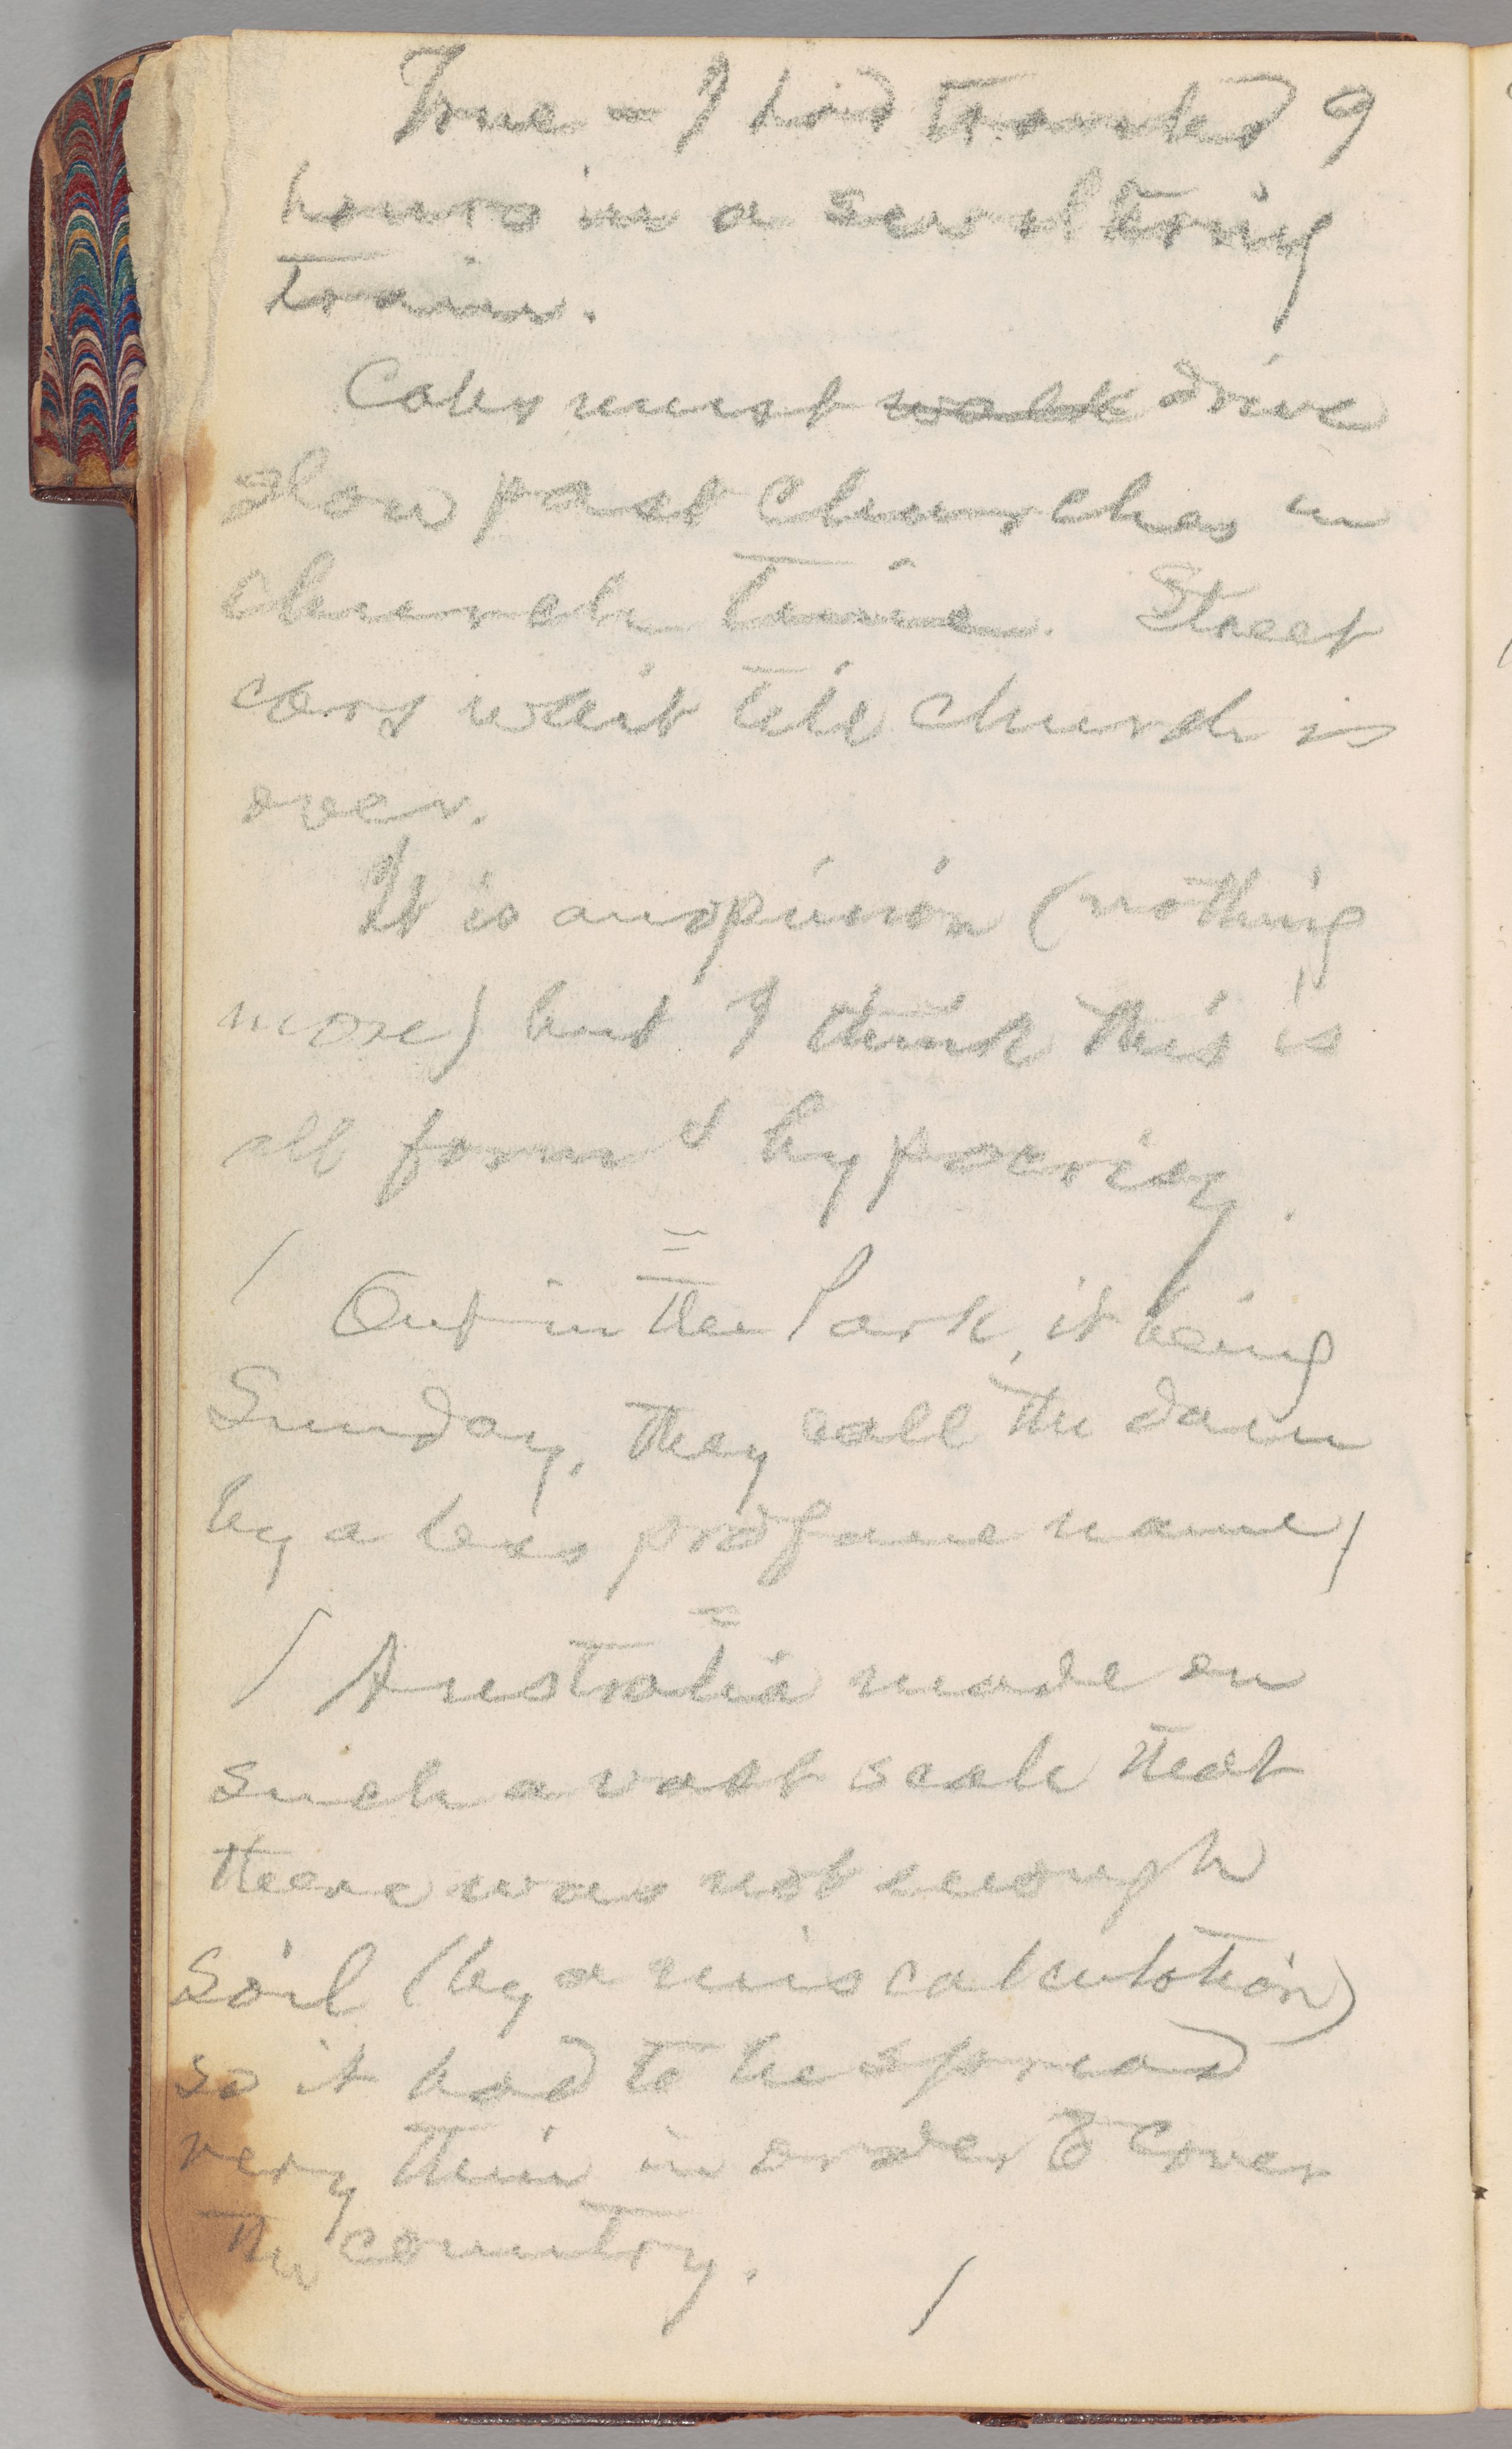 True – I had traveled 9
hours in a sweltering
train.
Cabs must walk drive
slow past churches in
church time. Street
cars wait till church is
over.
It is an opinion (nothing
more) but I think this is
all form & hypocrisy.
=
/ Out in the Park, it being
Sunday, they call the dam
by a less profane name /
=
/ Australia made on
such a vast scale that
there was not enough
soil (by a miscalculation)
so it had to be spread
very thin in order to cover
the country. /